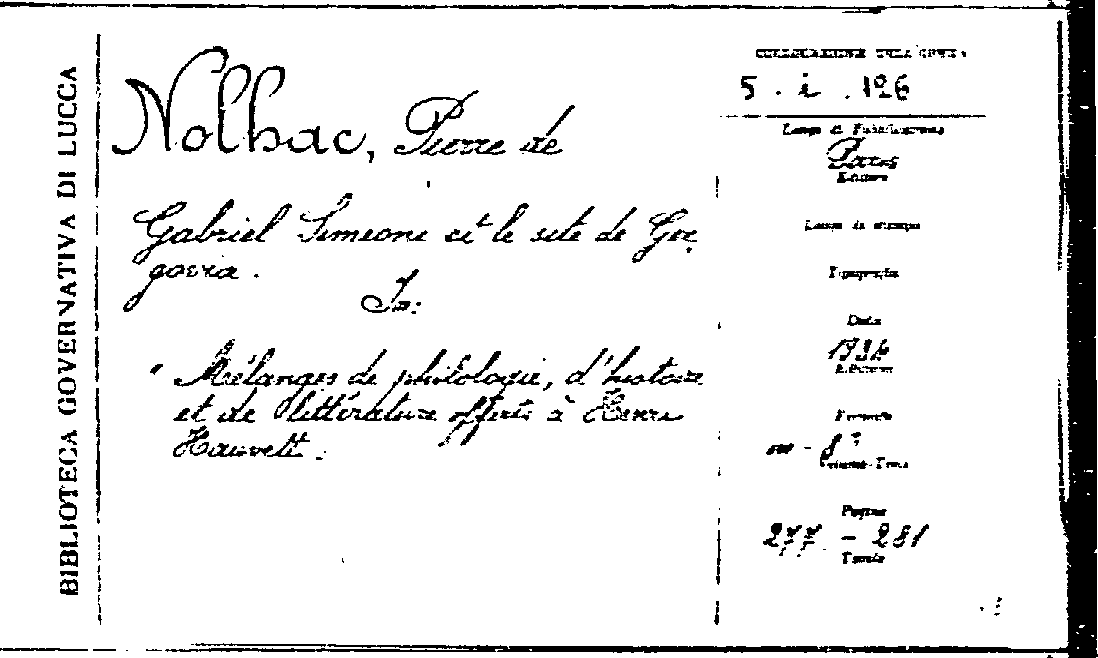 BIBLIOTECA GOVERNATIVA DI LUCCA
Nolhac, Pierre de
Gabriel Simeone et le site de Ger
govia.
In:
" Mélanges de philologie, d'histoire
et de littérature offerts à Henri
Hauvett.
COLLOCAZIONE DELL'OPERA
5 . i . 126
Luogo di Pubblicazione
Paris
Edizione
Luogo di stampa
Tipografia
Data
1934
Edizione
Formato
in - 8°
Pagine
277 - 281
Tavole